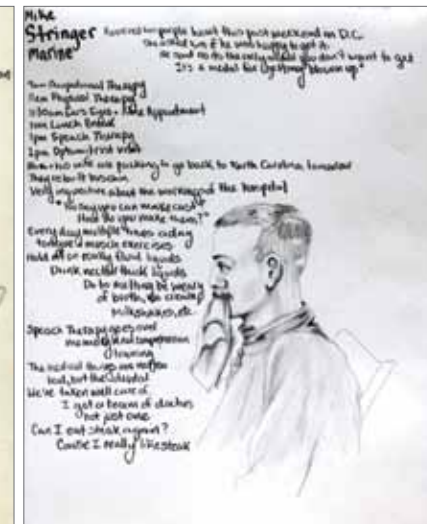 Mike
Stringer
Marine
Received his purple heart this past weekend in D.C.
She asked him if he was happy to get it.
He said no its the only medal you don't want to get
It's a medal for getting blown up"
9am Occupational Therapy
10am Physical Therapy
11:30am Ears Eyes + Appointment
Lunch Break
1pm Speach Therapy
2pm Optometrist visit
wife are packing to go back to North Carolina tomorrow
Very inquisitive about the workings of the hospital
"You say you can make casts
How do you make them?"
Every day multiple times
tongue muscle exercises
Hold off on really fluid liquids
Drink nectar thick liquids
Do be
of ice cream
milkshakes, etc.
Speach Therapy goes over
memory and comprehension
training
The medical things are not
but the hospital
We're taken well care of
I got a team of doctors
not just one
Can I eat steak again?
Cause I really like steak